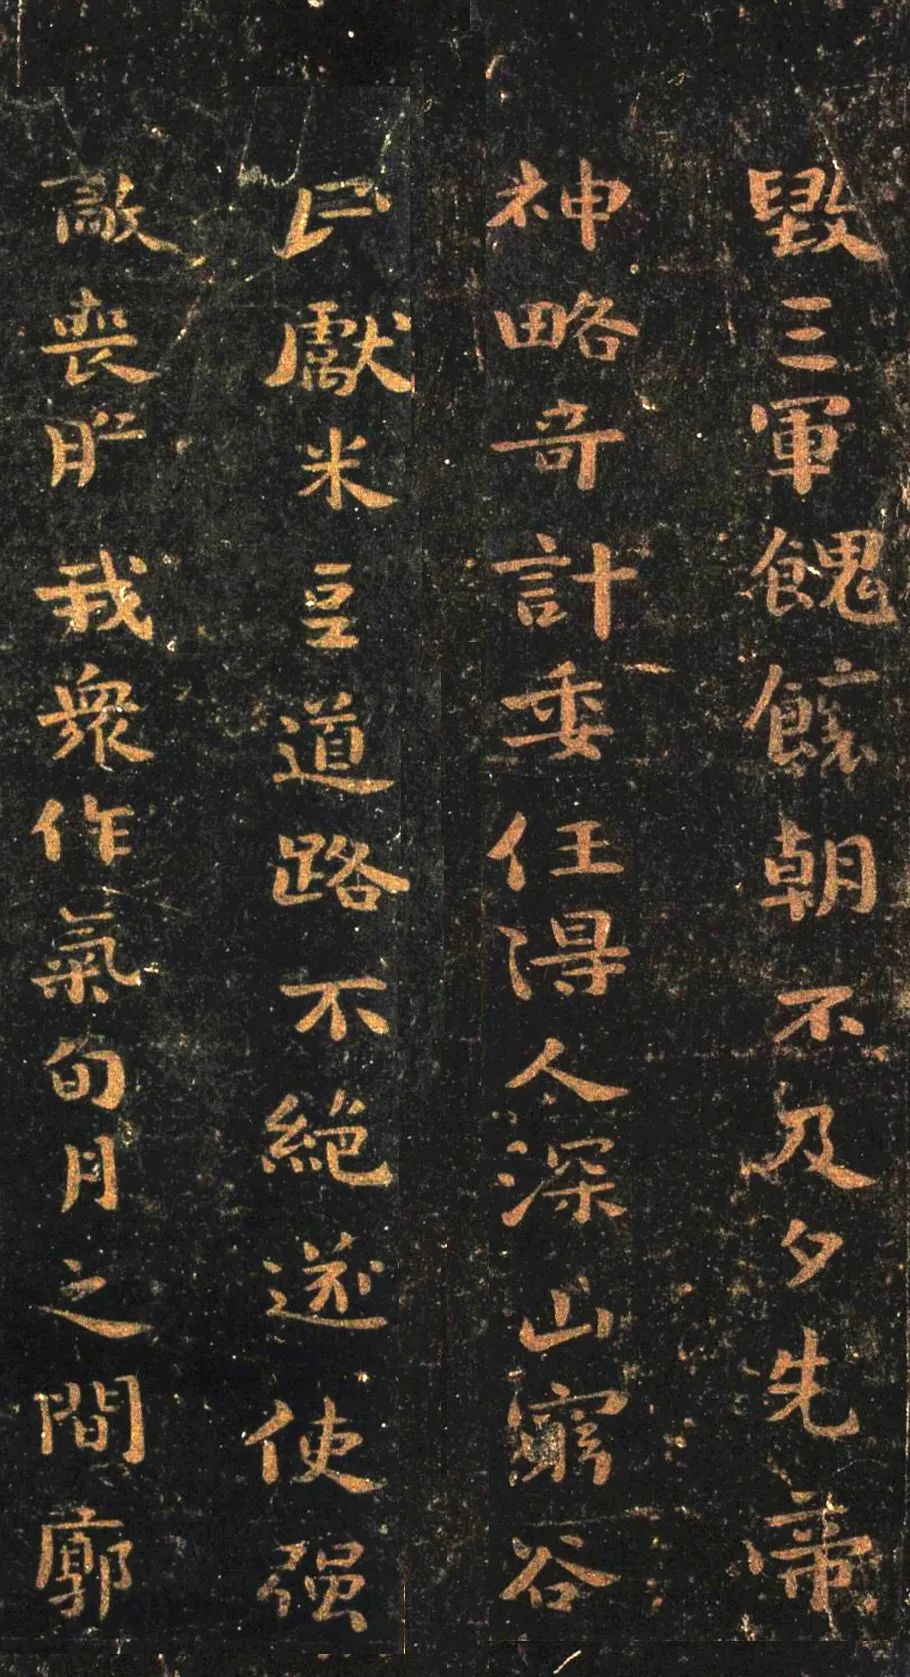 毀三軍餽饟朝不及夕先帝
神略奇計委任得人深山窮谷
民獻米豆道路不絕遂使强
敵喪膽我眾作氣旬月之間廓